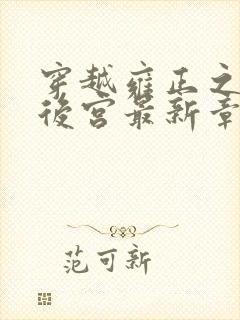 穿越雍正之
後宮最新章
范可新